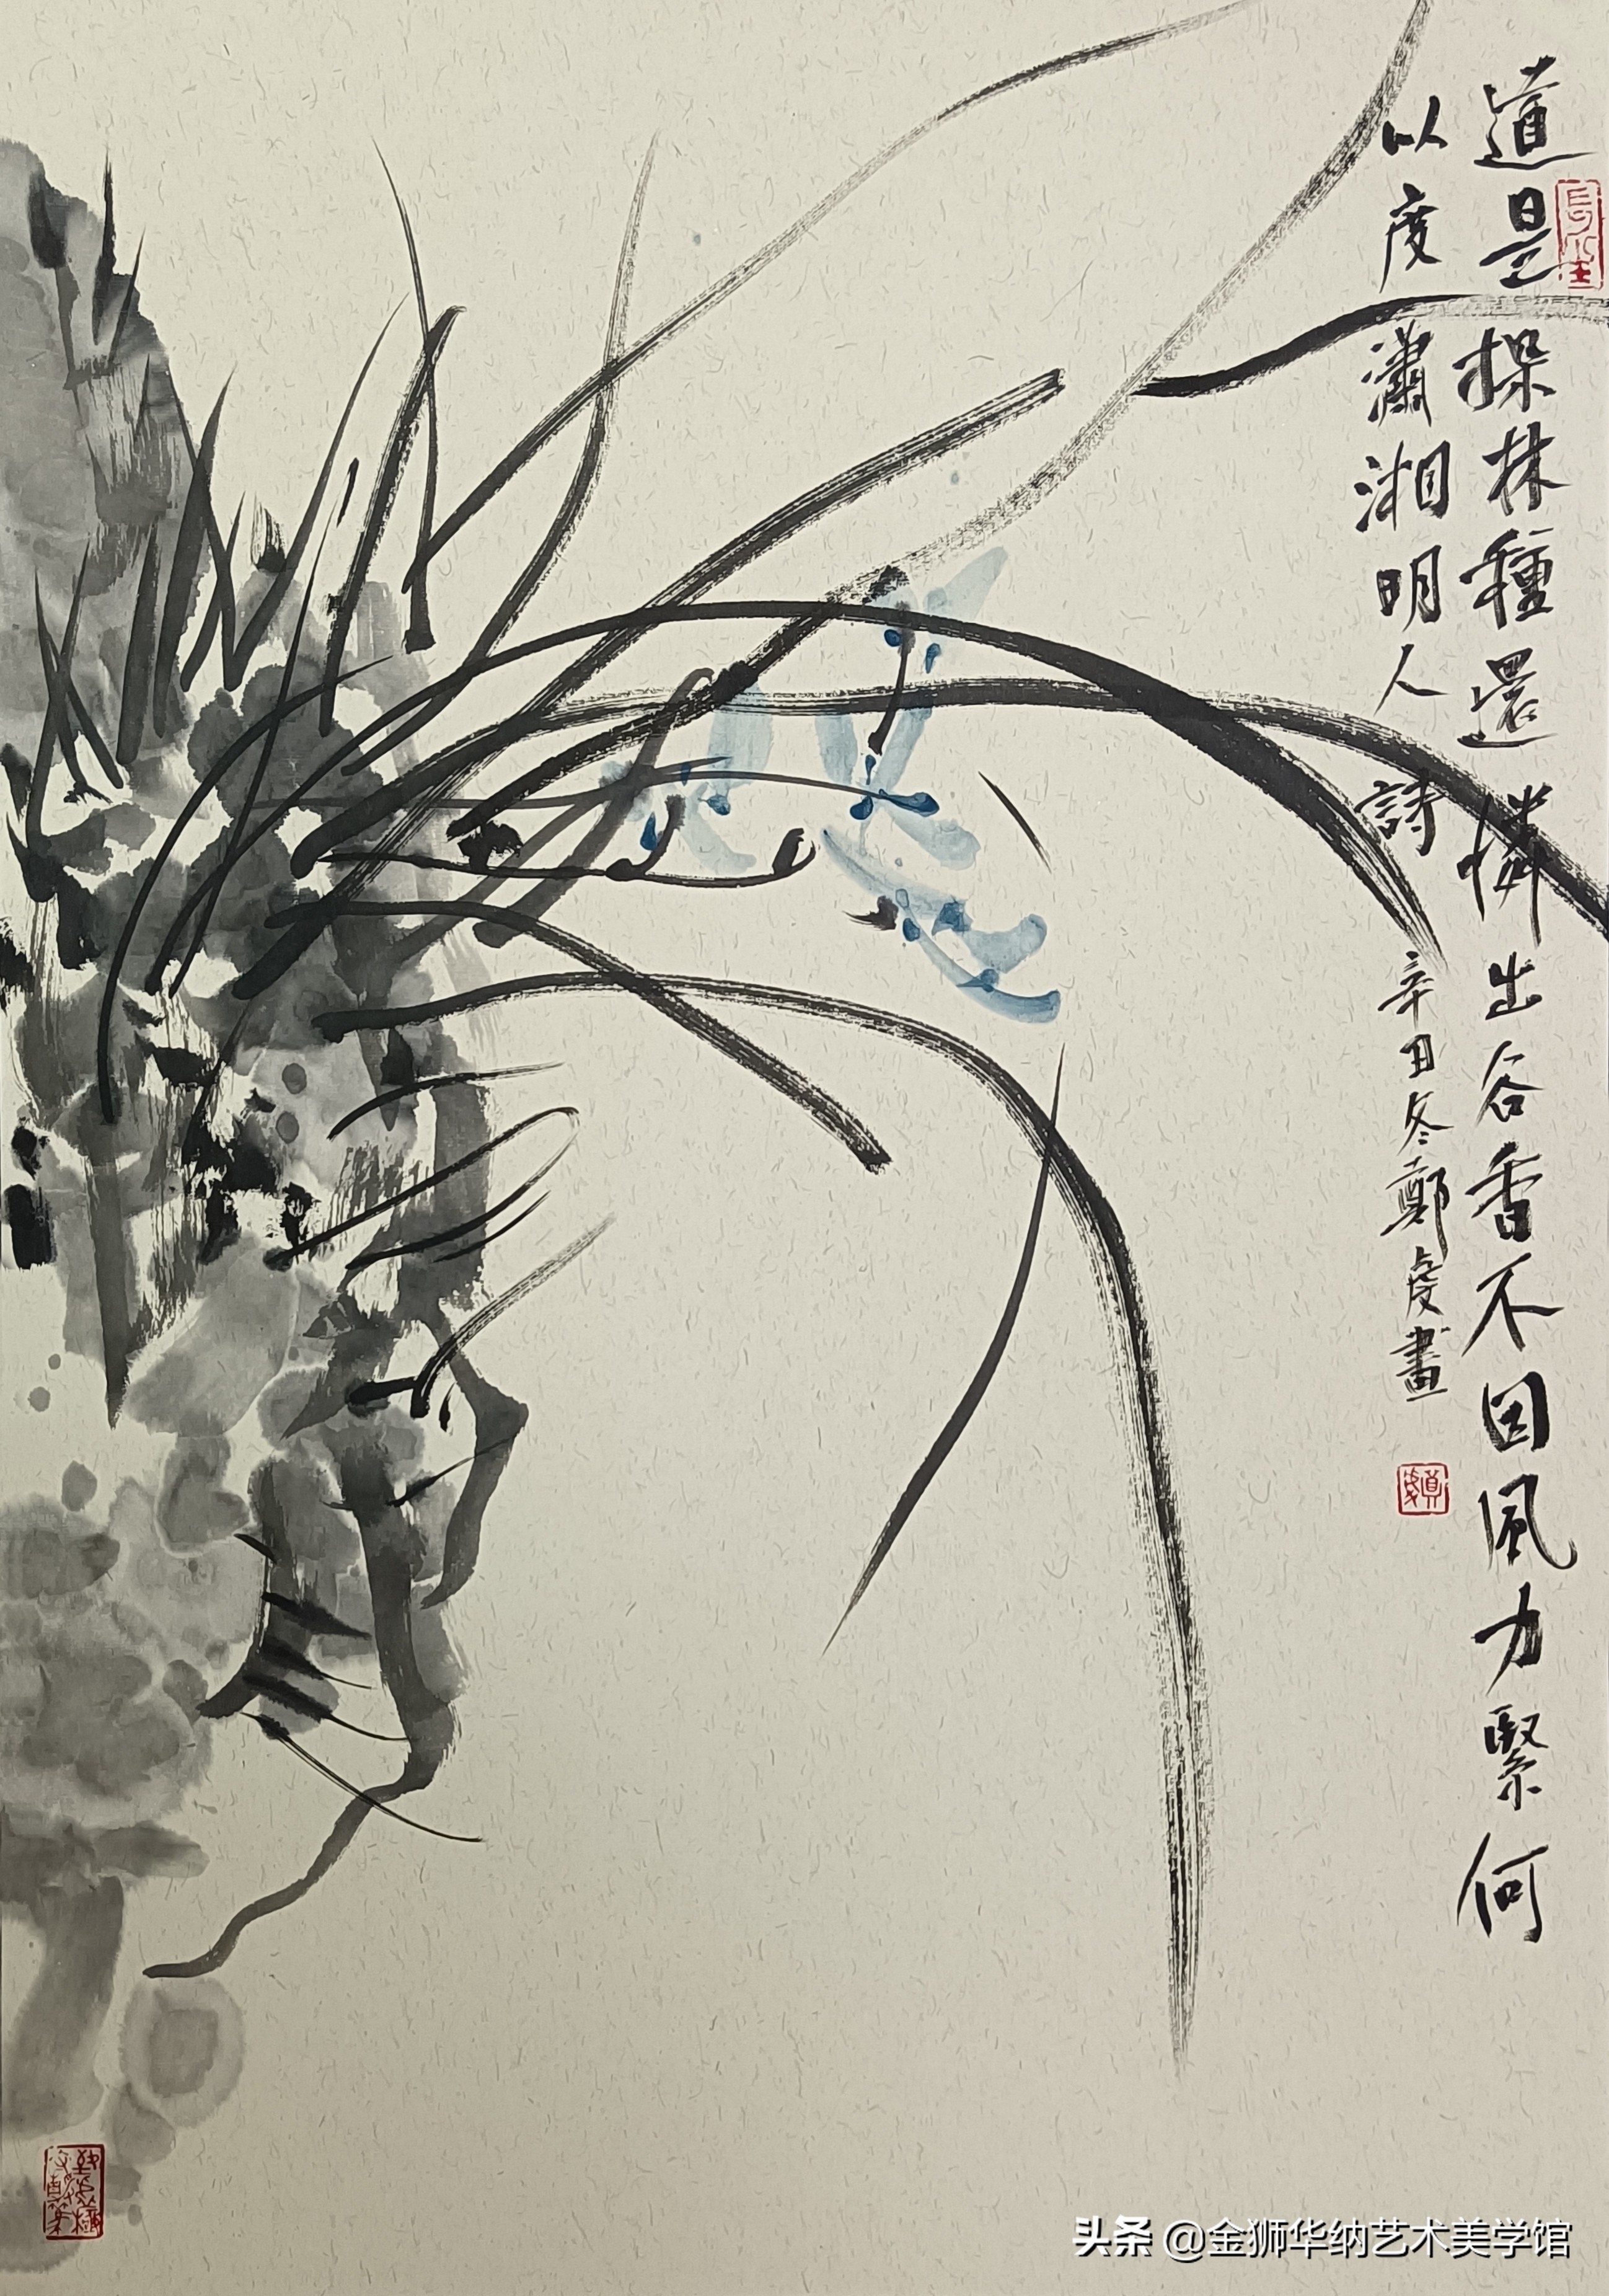 道是深林種還憐出谷香不因風力緊何
以度瀟湘明人詩 辛丑冬鄭虔畫
头条 @金狮华纳艺术美学馆